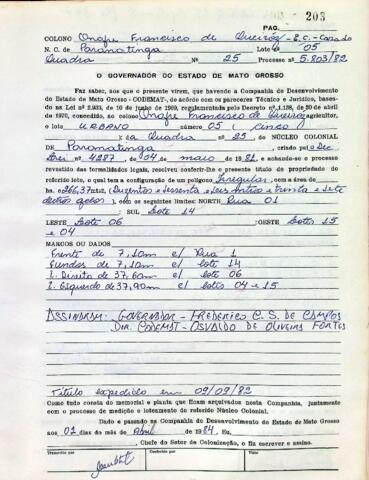 PAG. 203
COLONO Onofre Francisco de Queiróz - E.C. - Casado
N. C. de Paranatinga Lote nº 05
Quadra Nº 25 Processo nº 5.803/82
O GOVERNADOR DO ESTADO DE MATO GROSSO
Faz saber, aos que a presente virem, que havendo a Companhia de Desenvolvimento
do Estado de Mato Grosso - CODEMAT-, de acordo com os pareceres Técnico e Jurídico, basea-
dos na Lei nº 2.893, de 16 de junho de 1969, regulamentada pelo Decreto nº 1.138, de 20 de abril
de 1970, concedido, ao colono Onofre Francisco de Queiroz, agricultor,
o lote URBANO número 05 ( cinco )
da Quadra nº 25 do NÚCLEO COLONIAL
DE Paranatinga criado pelo Dec
Lei nº 4287, de 04 de maio de 1981, e achando-se o processo
revestido das formalidades legais, resolveu conferir-lhe o presente título de propriedade do
referido lote, o qual tem a configuração de um polígono Irregular, com a área de
hs. 266,37m2, (Duzentos e sessenta e seis metros e trinta e sete
), com os seguintes limites: NORTE Rua 01
: SUL Lote 14
LESTE Lote 06 : OESTE Lotes 15
e 04
MARCOS OU DADOS
Frente de 7,10m c/ Rua 1
Fundos de 7,10m c/ lote 14
L. Direito de 37,60m c/ lote 06
L. Esquerdo de 37,90m c/ lotes 04 e 15
ASSINARAM: GOVERNADOR - FREDERICO C. S. DE CAMPOS
DIR. CODEMAT - OSVALDO DE OLIVEIRA FORTES
Título expedido em 09/09/82
Como tudo consta do memorial e planta que ficam arquivados nesta Companhia, juntamente
com o processo de medição e loteamento do referido Núcleo Colonial.
Dado e passado na Companhia de Desenvolvimento do Estado de Mato Grosso
aos 02 dias do mês de Abril de 1984, Eu,
, Chefe do Setor de Colonização, o fiz escrever e assino.
Transcrito por Conferido por Visto